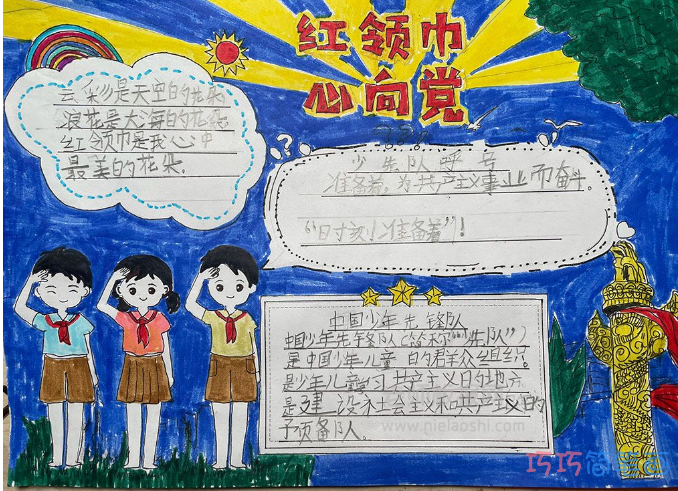 红领巾
心向党
云彩是天空的花朵
浪花是大海的花朵
红领巾是我心中
最美的花朵.
少先队呼号
准备着,为共产主义事业而奋斗。
“时刻准备着”!
中国少年先锋队
中国少年先锋队(简称“少先队”)
是中国少年儿童的群众组织。
是少年儿童学习共产主义的地方
是建设社会主义和共产主义的
预备队。
www.qielaoshi.com
巧巧简笔画